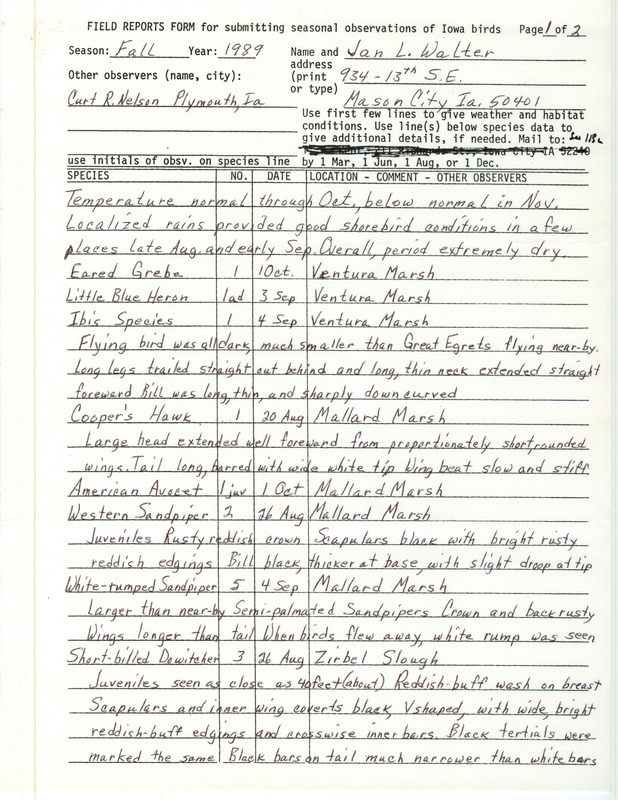 FIELD REPORTS FORM for submitting seasonal observations of Iowa birds Page 1 of 2
Season: Fall Year: 1989 Name and Jan L. Walter
address
Other observers (name, city): (print 934 - 13th S.E.
or type)
Curt R. Nelson Plymouth, Ia Mason City Ia. 50401
Use first few lines to give weather and habitat
conditions. Use line(s) below species data to
give additional details, if needed. Mail to:
Iowa City IA 52240
use initials of obsv. on species line by 1 Mar, 1 Jun, 1 Aug, or 1 Dec.
SPECIES NO. DATE LOCATION - COMMENT - OTHER OBSERVERS
Temperature normal through Oct, below normal in Nov.
Localized rains provided good shorebird conditions in a few
places late Aug. and early Sep. Overall, period extremely dry.
Eared Grebe 1 1 Oct. Ventura Marsh
Little Blue Heron 1ad 3 Sep Ventura Marsh
Ibis Species 1 4 Sep Ventura Marsh
Flying bird was all dark, much smaller than Great Egrets flying near-by.
Long legs trailed straight out behind and long, thin neck extended straight
foreward Bill was long, thin, and sharply down curved
Cooper's Hawk 1 20 Aug Mallard Marsh
Large head extended well foreward from proportionately short, rounded
wings. Tail long, barred with wide white tip Wing beat slow and stiff
American Avocet 1 juv 1 Oct Mallard Marsh
Western Sandpiper 2 26 Aug Mallard Marsh
Juveniles Rusty reddish crown Scapulars black with bright rusty
reddish edgings Bill black, thicker at base, with slight droop at tip
White-rumped Sandpiper 5 4 Sep Mallard Marsh
Larger than near-by Semi-palmated Sandpipers Crown and back rusty
Wings longer than tail When birds flew away, white rump was seen
Short-billed Dowitcher 3 26 Aug Zirbel Slough
Juveniles seen as close as 40 feet (about) Reddish-buff wash on breast
Scapulars and inner wing coverts black, V shaped, with wide, bright
reddish-buff edgings and crosswise inner bars. Black tertials were
marked the same Black bars on tail much narrower than white bars